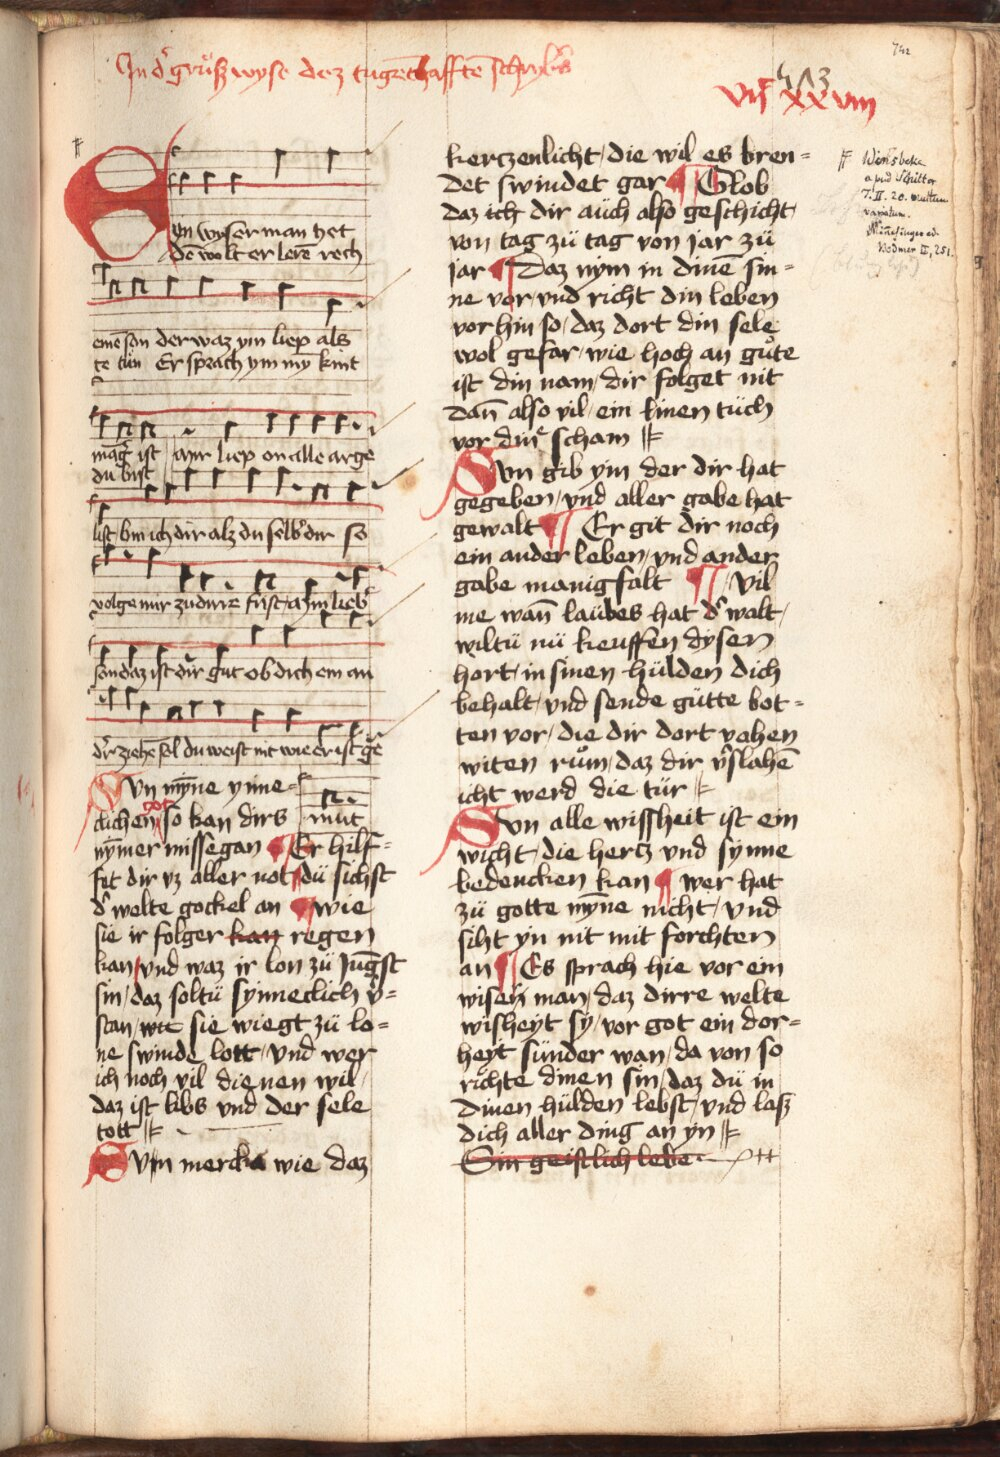 In dˀ gruͦsz wyse dez tugēthafftē schrybˀs
742
413
vijͨ xxviij
Eyn wyser man het
Dē wolt er lerē rech
einē son der waz ym liep als
te tun Er sprach ym myn kint
māgˀ ist an ir liep on alle arge
du bist
list bin ich dir alz du selbˀ dir so
volge mir zu dirre frist
son daz ist dir gut ob dich ein an
dˀr ziehē sol du weist nit wie er ist ge
mut
Svn mȳne ynne=
clichen got so kan dirs
nȳmer missegan ¶ Er hilf=
fet dir vz aller not / dü sichst
dˀ welte gockel an ¶ wie
sie ir folger kan regen
kan / vnd waz ir lon zü Jungst
sin / daz soltü synneclich vˀ=
stan / wie sie wiegt zü lo=
ne swinde lott / vnd wer
ich noch vil dienen wil /
daz ist libs vnd der sele
tott
Svn merck wie daz
kerczenlicht / die wil es bren=
det swindet gar ¶ Glob
daz ich dir aüch also geschicht /
von tag zü tag von jar zü
jar ¶ Daz nym in dinē sin=
ne vor / vnd richt din leben
vor hin so / daz dort din sele
wol gefar / wie hoch an guͦte
ist din nam / dir folget nit
dan̄ also vil / ein linen tüch
vor dinͤ scham
Svn gib ym der dir hat
gegeben / vnd aller gabe hat
gewalt ¶ Er git dir noch
ein ander leben / vnd ander
gabe manigfalt ¶ Vil
me wan̄ laübes hat dˀ walt /
wiltü nü keuffen dysen
hort / in sinen hülden dich
behalt / vnd sende gütte bot=
ten vor / die dir dort vahen
witen ruͦm / daz dir vˀslahē
icht werd die tür
Svn alle wissheit ist ein
wicht / die hertz vnd synne
bedencken kan ¶ wer hat
zü gotte mȳne nicht / vnd
siht yn nit mit forchten
an ¶ Es sprach hie vor ein
wisen man / daz dirre welte
wisheyt sy / vor got ein dor=
heyt sünder wan / da von so
richte dinen sin / daz dü in
dinen hülden lebst / vnd lasz
dich aller ding an yn
Sin geistlich lebē
Winsbeke
apud Schilter
T. II. 20. multum
variatum.
Minnesinger ed.
Bodmer II, 251.